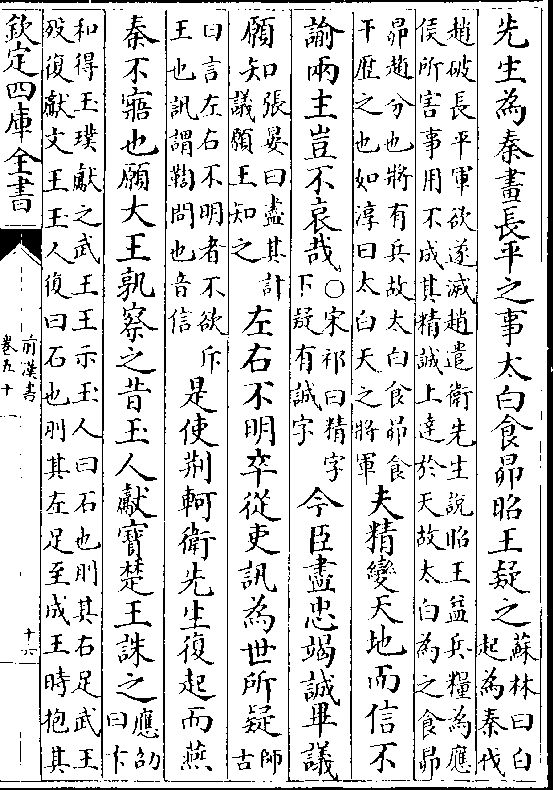 先生為秦畫長平之事太白食昴昭王疑之蘇林曰白
起為秦伐
趙破長平軍欲遂滅趙遣衛先生說昭王益兵糧為應
侯所害事用不成其精誠上達於天故太白為之食昴
昴趙分也將有兵故太白食昴食
干歴之也如淳曰太白天之將軍
夫精變天地而信不
諭兩主豈不哀哉○宋祁曰精字
下疑有誠字
今臣盡忠竭誠畢議
願知張晏曰盡其計
議願王知之
左右不明卒從吏訊為世所疑師
古
曰言左右不明者不欲斥
王也訊謂鞫問也音信
是使荆軻衛先生復起而燕
秦不寤也願大王孰察之昔玉人獻寶楚王誅之應劭
曰卞
和得玉璞獻之武王王示玉人曰石也刖其右足武王
歿復獻文王玉人復曰石也刖其左足至成王時抱其
欽定四庫全書
前漢書
卷五十
十六